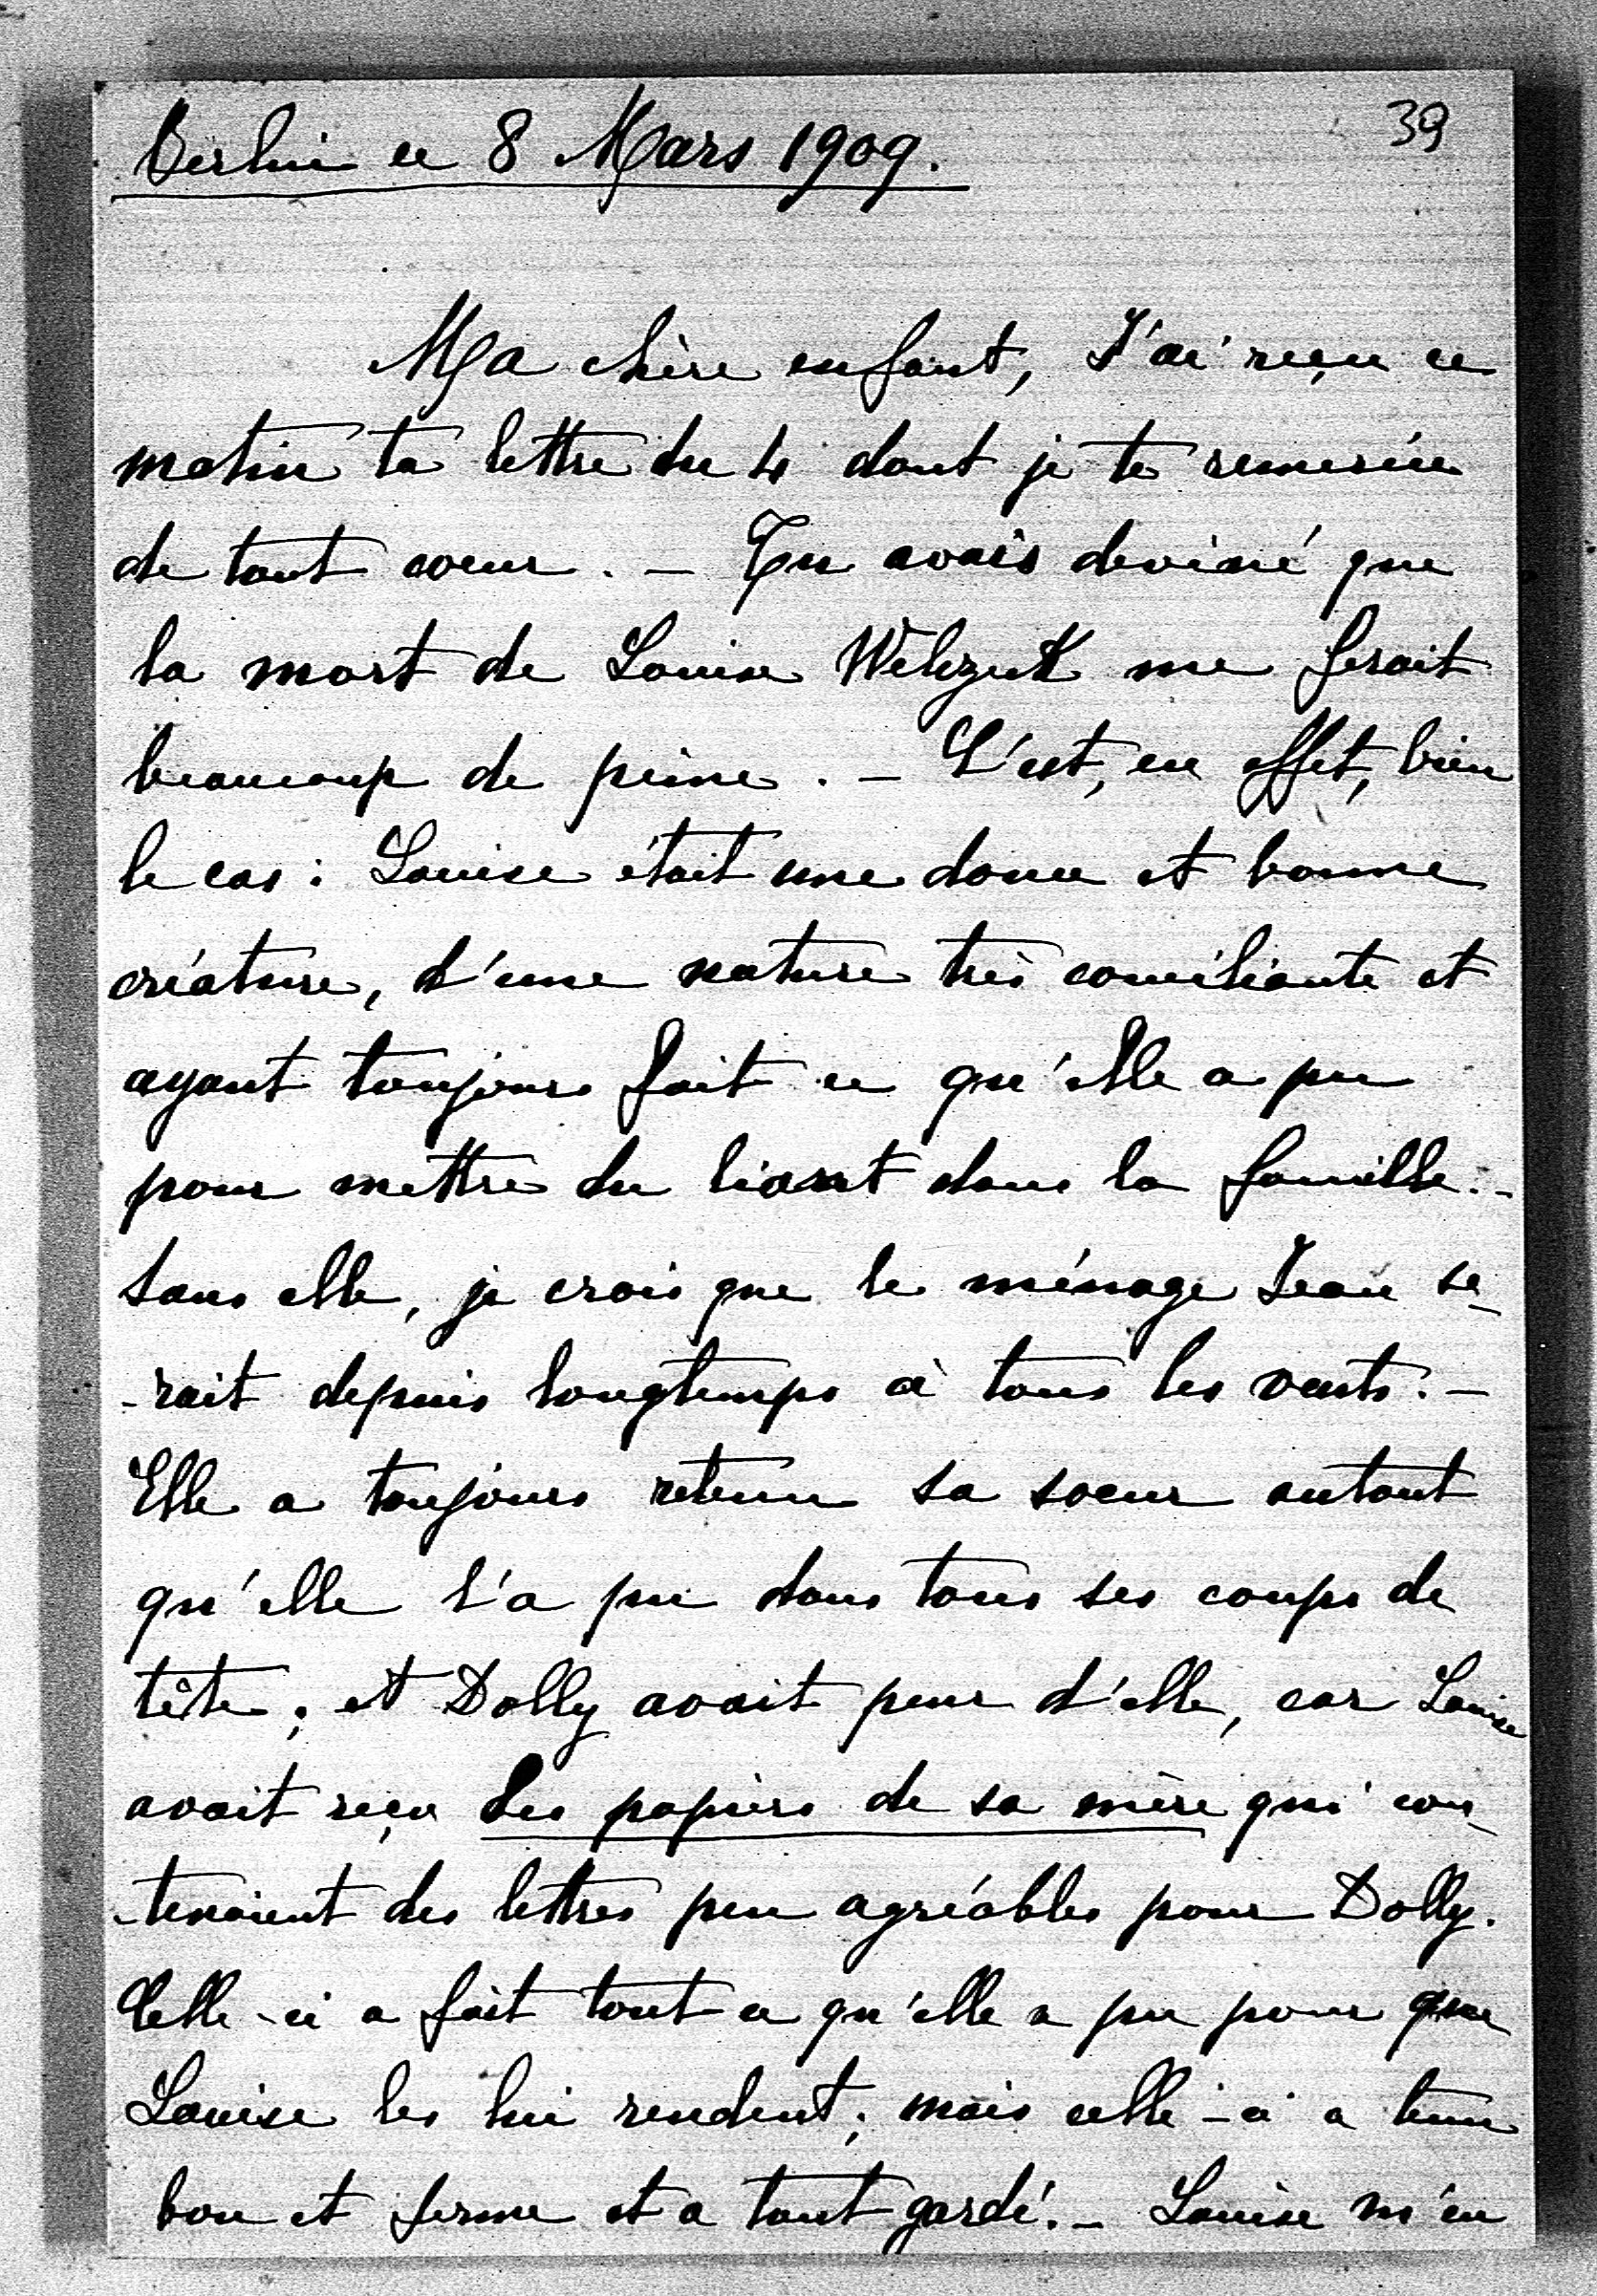 39
Berlin ce 8 Mars 1909.
Ma chère enfant, J'ai reçu ce
matin ta lettre du 4 dont je te remercie
de tout coeur. — Tu avais deviné que
la mort de Louise Welczeck me ferait
beaucoup de peine. — C'est, en effet, bien
le cas : Louise était une douce et bonne
créature, d'une nature très conciliante et
ayant toujours fait ce qu'elle a pu
pour mettre du liant dans la famille. -
Sans elle, je crois que le ménage Jean se-
-rait depuis longtemps à tous les vents. —
Elle a toujours retenu sa soeur autant
qu'elle l'a pu dans tous ses coups de
tête ; et Dolly avait peur d'elle, car Louise
avait reçu les papiers de sa mère qui con-
-tenaient des lettres peu agréables pour Dolly.
Celle-ci a fait tout ce qu'elle a pu pour que
Louise les lui rendent ; mais celle-ci a tenu
bon et ferme et a tout gardé. — Louise m'en